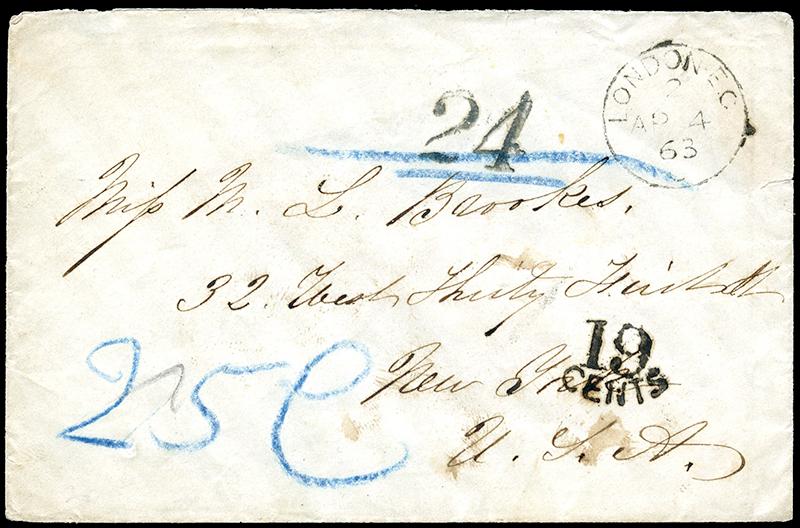 LONDON·E.C
2
AP 4
63
24
Miss M. L. Brookes.
32 West Thirty First St
19.
CENTS
New York
U. S. A.
25C